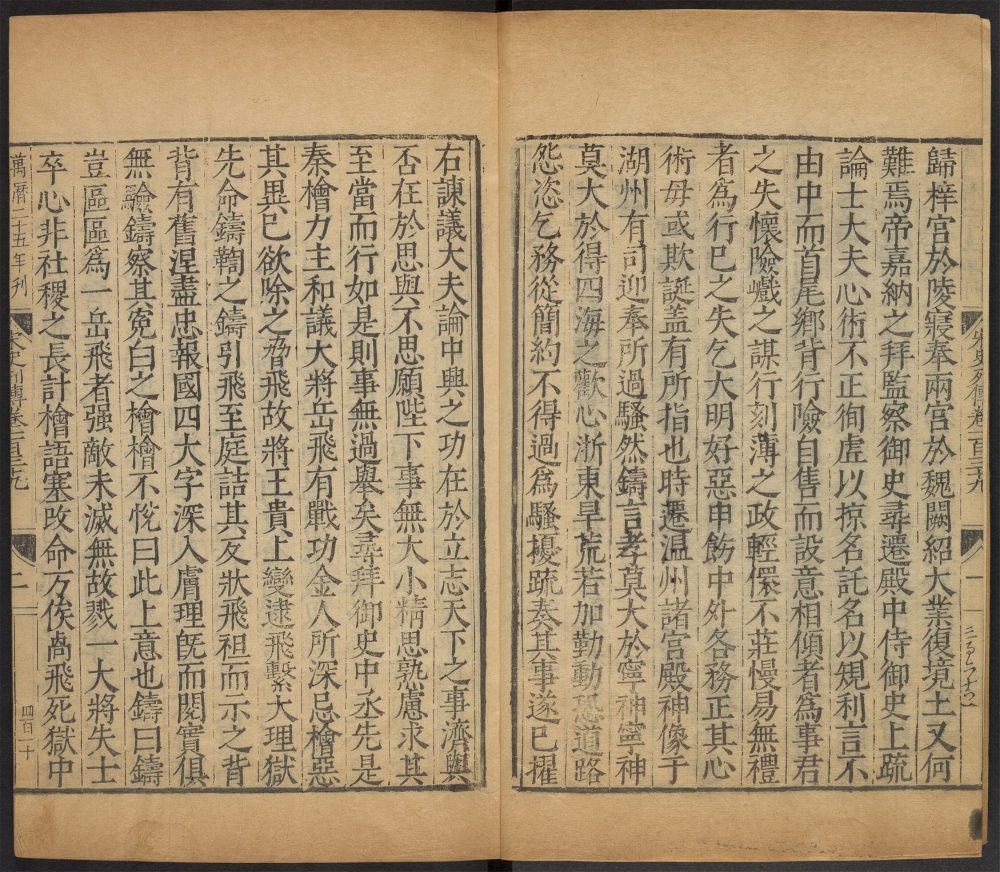 歸梓宮於陵寢奉兩宮於魏闕紹大業復境土又何
難焉帝嘉納之拜監察御史尋遷殿中侍御史上疏
論士大夫心術不正徇虛以掠名託名以規利言不
由中而首尾鄉背行險自售而設意相傾者為事君
之失懷險巇之謀行刻薄之政輕儇不莊慢易無禮
者為行已之失乞大明好惡申飭中外各務正其心
術毋或欺誕蓋有所指也時遷温州諸宮殿神像于
湖州有司迎奉所過騷然鑄言孝莫大於寧神寧神
莫大於得四海之歡心浙東旱荒若加勤動恐道路
怨恣乞務從簡約不得過為騷擾疏奏其事遂已擢
宋史列傳卷一百三十九
一
右諫議大夫論中興之功在於立志天下之事濟與
否在於思與不思願陛下事無大小精思熟慮求其
至當而行如是則事無過舉矣尋拜御史中丞先是
秦檜力主和議大將岳飛有戰功金人所深忌檜惡
其異已欲除之脅飛故將王貴上變逮飛繫大理獄
先命鑄鞫之鑄引飛至庭詰其反狀飛袒而示之背
背有舊涅盡忠報國四大字深入膚理既而閱實俱
無驗鑄察其寃白之檜檜不悅曰此上意也鑄曰鑄
豈區區為一岳飛者强敵未滅無故戮一大將失士
卒心非社稷之長計檜語塞改命万俟卨飛死獄中
萬曆二十五年刊
宋史列傳卷一百三十九
二
四百二十